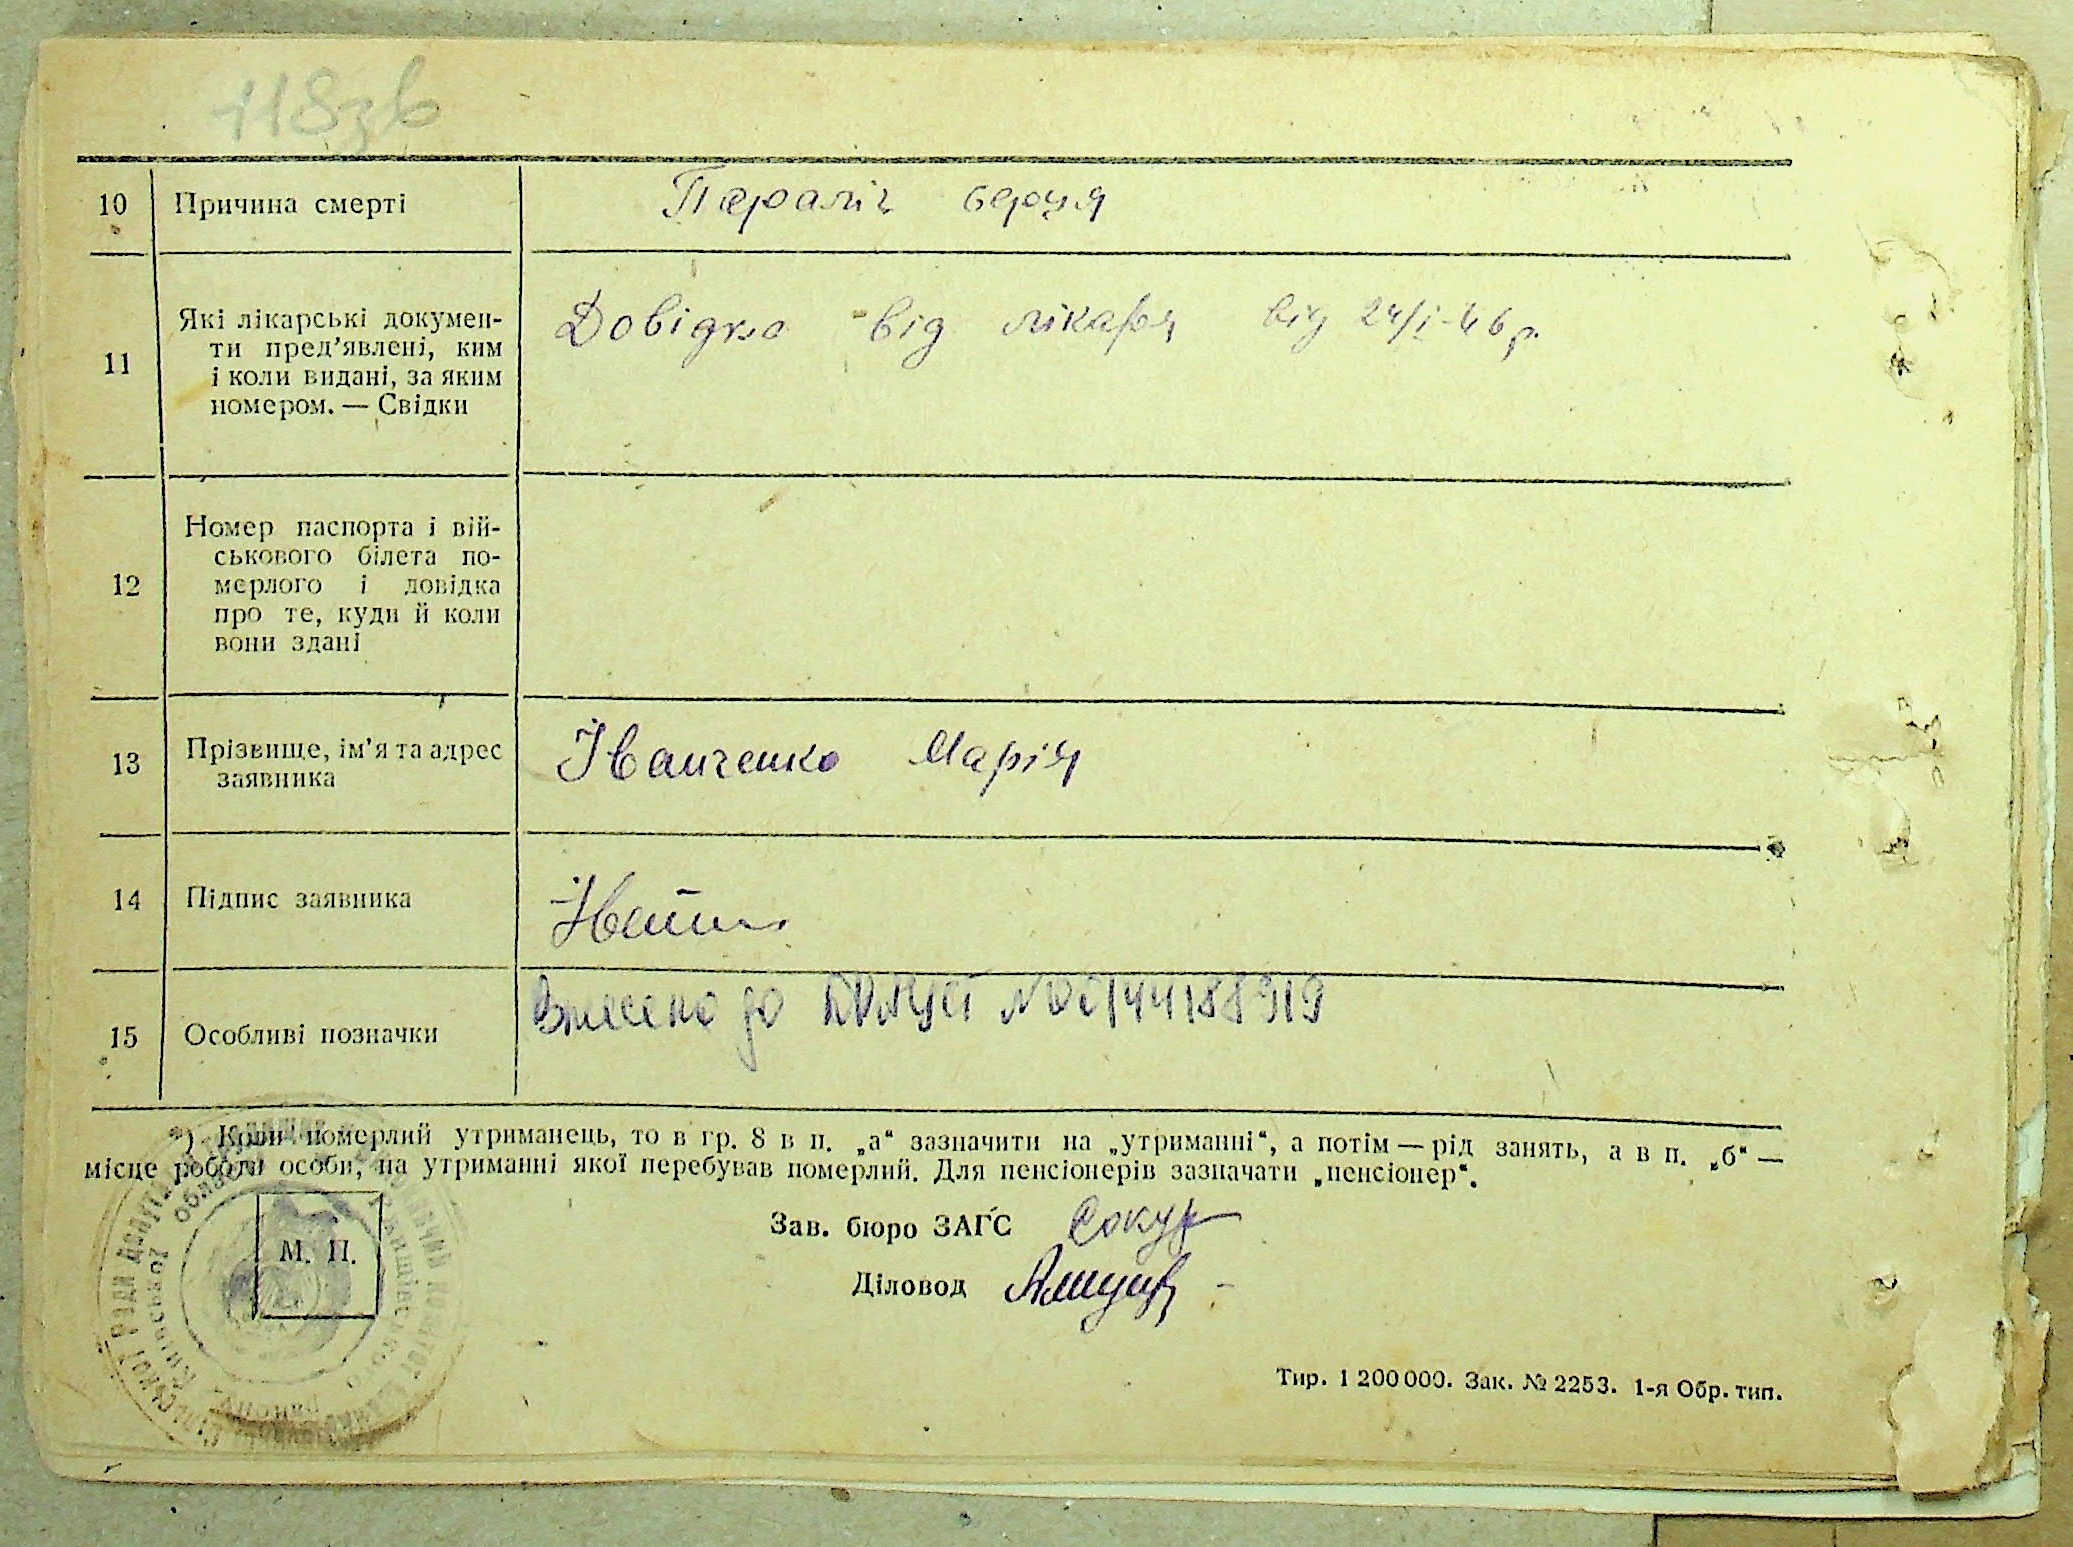 118зв
10 Причина смерті Параліч серця
11 Які лікарські докумен-
ти пред’явлені, ким
і коли видані, за яким
номером. — Свідки
Довідка від лікаря від 24/I-46 р.
12 Номер паспорта і вій-
ськового білета по-
мерлого і довідка
про те, куди й коли
вони здані
13 Прізвище, ім’я та адрес
заявника
Іванченко Марія
14 Підпис заявника
15 Особливі позначки
Внесено до ДРАЦСГ № 00144188919
*) Коли померлий утриманець, то в гр. 8 в п. „а“ зазначити на „утриманні“, а потім — рід занять, а в п. „б“ —
місце роботи особи, на утриманні якої перебував померлий. Для пенсіонерів зазначати „пенсіонер“.
М. П.
Зав. бюро ЗАГС Сокур
Діловод
Тир. 1 200 000. Зак. № 2253. 1-я Обр. тип.